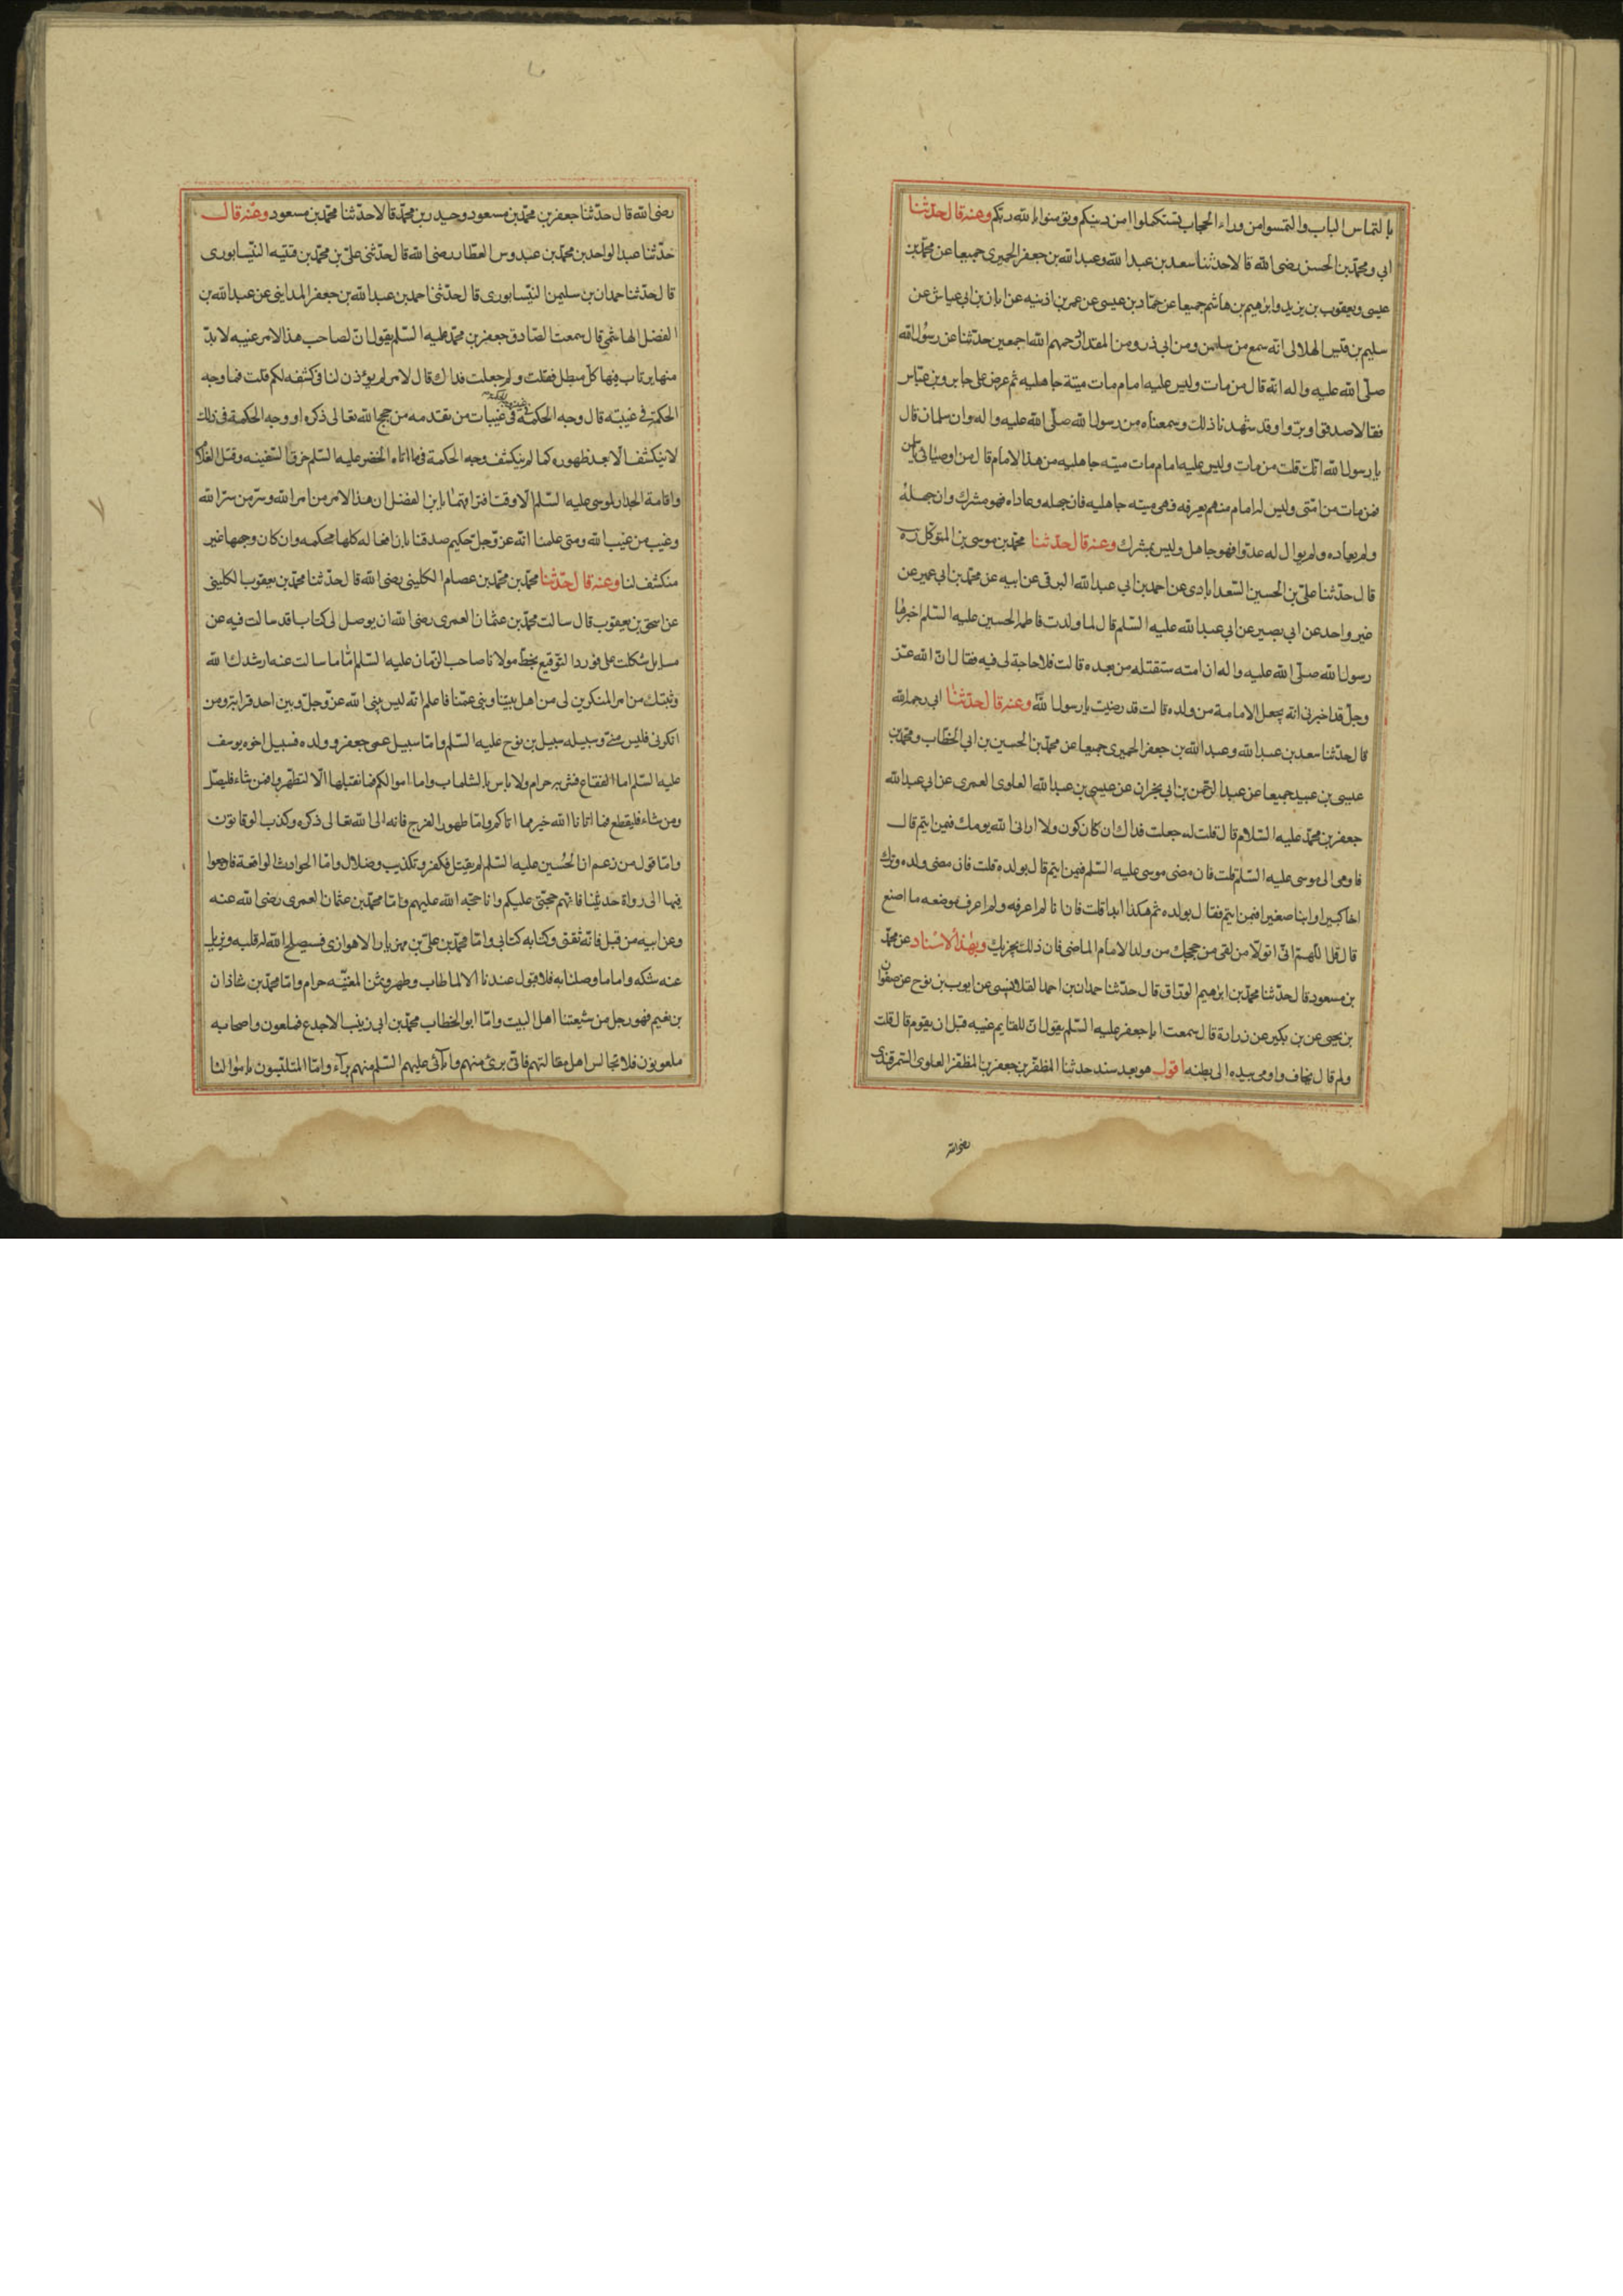 بالتماس الباب والتمسوا من وراء الحجاب تستكملوا امر دينكم وتؤمنوا بالله ربكم وعنه قال حدثنا
ابي ومحمد بن الحسن رضى الله قالا حدثنا سعد بن عبد الله وعبد الله بن جعفر الحميرى جميعا عن محمد بن
عيسى ويعقوب بن يزيد وابرهيم بن هاشم جميعا عن حماد بن عيسى عن عمر بن اذينه عن ابان بن ابي عياش عن
سليم بن قيس الهلالى انه سمع من سلمن ومن ابي ذر ومن المقداد رحمهم الله اجمعين حدثنا عن رسول الله
صلى الله عليه واله انه قال من مات وليس عليه امام مات ميتة جاهليه ثم عرض على جابر وبن عباس
فقالا صدقوا وبروا وقد شهدنا ذلك وسمعناه من رسول الله صلى الله عليه واله وان سلمان قال
يا رسول الله انك قلت من مات وليس عليه امام مات ميته جاهليه من هذا الامام قال من اوصيائى يا سلمن
فمن مات من امتى وليس له امام منهم يعرفه فهى ميته جاهليه فان جهله وعاداه فهو مشرك وان جهله
ولم يعاده ولم يوال له عدوا فهو جاهل وليس بمشرك وعنه قال حدثنا محمد بن موسى بن المتوكل ره
قال حدثنا على بن الحسين السعدابادى عن احمد بن ابي عبد الله البرقى عن ابيه عن محمد بن ابي عمير عن
غير واحد عن ابي بصير عن ابي عبد الله عليه السلم قال لما ولدت فاطمه الحسين عليه السلم اخبرها
رسول الله صلى الله عليه واله ان امته ستقتله من بعده قالت فلا حاجة لى فيه فقال ان الله عز
وجل قد اخبرنى انه يجعل الامامة من ولده قالت قد رضيت يا رسول الله وعنه قال حدثنا ابي رحمه الله
قال حدثنا سعد بن عبد الله وعبد الله بن جعفر الحميرى جميعا عن محمد بن الحسين بن ابي الخطاب ومحمد بن
عيسى بن عبيد جميعا عن عبد الرحمن بن ابي نجران عن عيسى بن عبد الله العلوى العمرى عن ابي عبد الله
جعفر بن محمد عليه السلام قال قلت له جعلت فداك ان كان كون ولا ارانى الله يومك فبمن ايتم قال
فاومى الى موسى عليه السلم قلت فان مضى موسى عليه السلم فبمن ايتم قال بولده قلت فان مضى ولده وترك
اخا كبيرا وابنا صغيرا فبمن ايتم فقال بولده ثم هكذا ابدا قلت فان انا لم اعرفه ولم اعرف موضعه ما اصنع
قال تقل اللهم انى اتولا من بقى من حججك من ولد الامام الماضى فان ذلك يجزيك وبهذا الاسناد عن محمد
بن مسعود قال حدثنا محمد بن ابرهيم الوراق قال حدثنا حمدان بن احمد القلانسى عن ايوب بن نوح عن صفوان
بن يحيى عن بن بكير عن زرارة قال سمعت ابا جعفر عليه السلم يقول ان للقايم غيبه قبل ان يقوم قال قلت
ولم قال يخاف واومى بيده الى بطنه اقول هو بعد سند حدثنا المظفر بن جعفر بن المظفر العلوى السمرقندى
رضى الله
رضى الله قال حدثنا جعفر بن محمد بن مسعود وحيدر بن محمد قالا حدثنا محمد بن مسعود وعنه قال
حدثنا عبد الواحد بن محمد بن عبدوس العطار رضى الله قال حدثنى على بن محمد بن قتيبه النيسابورى
قال حدثنا حمدان بن سليمن النيسابورى قال حدثنى احمد بن عبد الله بن جعفر المداينى عن عبد الله بن
الفضل الهاشمى قال سمعت الصادق جعفر بن محمد عليه السلم يقول ان لصاحب هذا الامر غيبه لا بد
منها يرتاب فيها كل مبطل فقلت ولم جعلت فداك قال لامر لم يؤذن لنا فى كشفه لكم قلت فما وجه
الحكمة فى غيبته قال وجه الحكمة فى غيبات من تقدمه من حجج الله تعالى ذكره او وجه الحكمة فى ذلك
لا ينكشف الا بعد ظهوره كما لم ينكشف وجه الحكمة فيما اتاه الخضر عليه السلم من خرق السفينه وقتل الغلام
واقامة الجدار لموسى عليه السلم الا وقت افتراقهما يا بن الفضل ان هذا الامر من امر الله وسر من سر الله
وغيب من غيب الله ومتى علمنا انه عز وجل حكيم صدقنا بان افعاله كلها محكمه وان كان وجهها غير
منكشف لنا وعنه قال حدثنا محمد بن محمد بن عصام الكلينى رضى الله قال حدثنا محمد بن يعقوب الكلينى
عن اسحق بن يعقوب قال سالت محمد بن عثمان العمرى رضى الله ان يوصل لى كتابا قد سالت فيه عن
مسايل شكلت على فورد التوقيع بخط مولانا صاحب الزمان عليه السلم اما ما سالت عنه ارشدك الله
وثبتك من امر المنكرين لى من اهل بيتنا وبنى عمنا فاعلم انه ليس بين الله عز وجل وبين احد قرابة ومن
انكرنى فليس منى وسبيله سبيل بن نوح عليه السلم واما سبيل عمى جعفر وولده فسبيل اخوه يوسف
عليه السلم اما الفقاع فشربه حرام ولا باس بالشلماب واما اموالكم فما نقبلها الا لتطهروا فمن شاء فليصل
ومن شاء فليقطع فما اتانا الله خير مما اتاكم واما ظهور الفرج فانه الى الله تعالى ذكره وكذب الوقاتون
واما قول من زعم ان الحسين عليه السلم لم يقتل فكفر وتكذيب وضلال واما الحوادث الواقعة فارجعوا
فيها الى رواة حديثنا فانهم حجتى عليكم وانا حجة الله عليهم واما محمد بن عثمان العمرى رضى الله عنه
وعن ابيه من قبل فانه ثقتى وكتابه كتابى واما محمد بن على بن مهزيار الاهوازى فسيصلح الله له قلبه ويزيل
عنه شكه واما ما وصلنا به فلا قبول عندنا الا لما طاب وطهر وثمن المغنيه حرام واما محمد بن شاذان
بن نعيم فهو رجل من شيعتنا اهل البيت واما ابو الخطاب محمد بن ابى زينب الاجدع فملعون واصحابه
ملعونون فلا تجالس اهل مقالتهم فانى برئ منهم واٰبائى عليهم السلم منهم برآء واما المتلبسون باموالنا